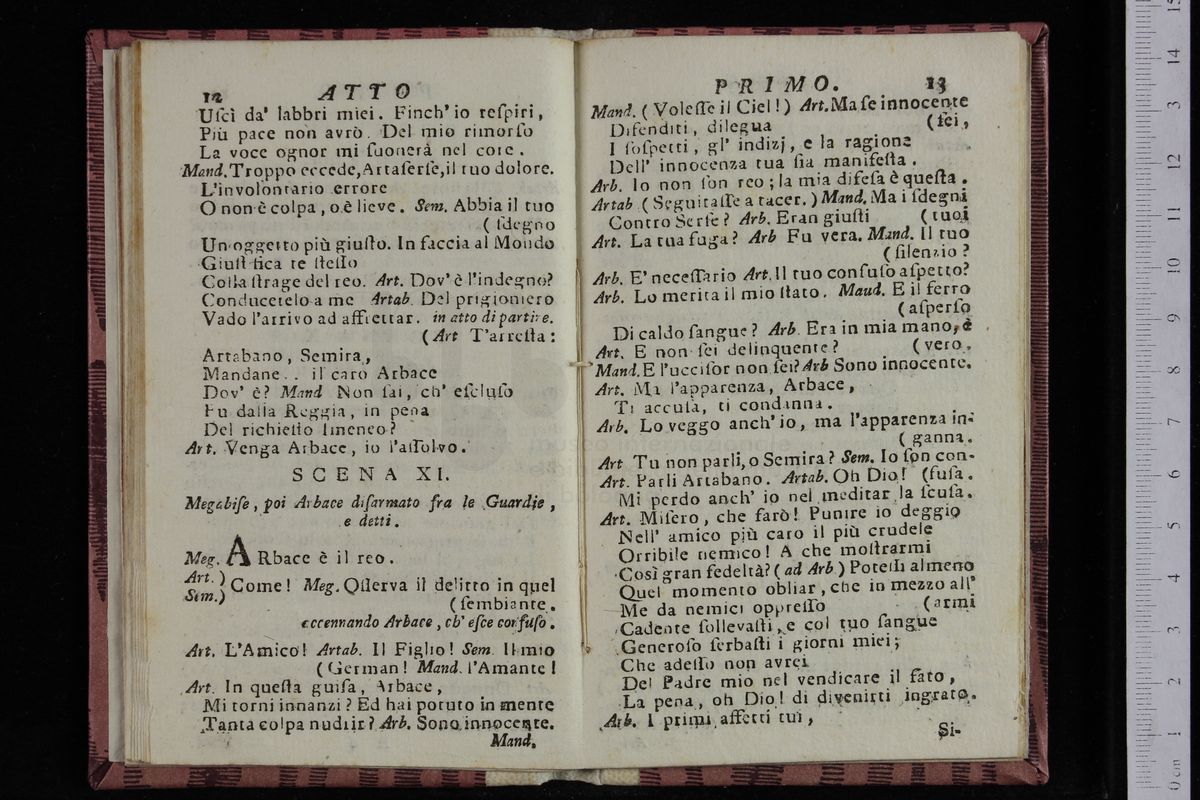 12 ATTO
Uſcì da' labbri miei. Finch' io reſpiri,
Più pace non avrò. Del mio rimorſo
La voce ognor mi ſuonerà nel core.
Mand. Troppo eccede, Artaſerſe, il tuo dolore.
L'involontario errore
O non è colpa, o è lieve. Sem. Abbia il tuo
( ſdegno
Un oggetto più giuſto. In faccia al Mondo
Giuſtifica te ſteſſo
Colla ſtrage del reo. Art. Dov' è l'indegno?
Conducetelo a me Artab. Del prigioniero
Vado l'arrivo ad affrettar. in atto di partire.
( Art T'arreſta:
Artabano, Semira,
Mandane.. il caro Arbace
Dov' è? Mand Non ſai, ch' eſcluſo
Fu dalla Reggia, in pena
Del richieſto Imeneo?
Art. Venga Arbace, io l'aſſolvo.
SCENA XI.
Megabiſe, poi Arbace diſarmato fra le Guardie,
e detti.
Meg. ARbace è il reo.
Art. )
Sem.) Come! Meg. Oſſerva il delitto in quel
( ſembiante.
accennando Arbace, ch' eſce confuſo.
Art. L'Amico! Artab. Il Figlio! Sem. Il mio
( German! Mand. l'Amante!
Art. In queſta guiſa, Arbace,
Mi torni innanzi? Ed hai potuto in mente
Tanta colpa nudrir? Arb. Sono innocente.
Mand.
PRIMO. 13
Mand. ( Voleſſe il Ciel!) Art. Ma ſe innocente
Difenditi, dilegua ( ſei,
I ſoſpetti, gl' indizj, e la ragione
Dell' innocenza tua ſia manifeſta.
Arb. Io non ſon reo; la mia difeſa è queſta.
Artab ( Seguitaſſe a tacer. ) Mand. Ma i ſdegni
Contro Serſe? Arb. Eran giuſti ( tuoi
Art. La tua fuga? Arb Fu vera. Mand. Il tuo
( ſilenzio?
Arb. E' neceſſario Art. Il tuo confuſo aſpetto?
Arb. Lo merita il mio ſtato. Maud. E il ferro
( aſperſo
Di caldo ſangue? Arb. Era in mia mano, è
Art. E non ſei delinquente? ( vero.
Mand. E l'uccifor non ſei? Arb Sono innocente.
Art. Ma l'apparenza, Arbace,
Ti accuſa, ti condanna.
Arb. Lo veggo anch' io, ma l'apparenza in-
( ganna.
Art Tu non parli, o Semira? Sem. Io ſon con-
Art. Parli Artabano. Artab. Oh Dio! (fuſa.
Mi perdo anch' io nel meditar la ſcuſa.
Art. Miſero, che farò! Punire io deggio
Nell' amico più caro il più crudele
Orribile nemico! A che moſtrarmi
Così gran fedeltà? ( ad Arb ) Poteſſi almeno
Quel momento obliar, che in mezzo all'
Me da nemici oppreſſo ( armi
Cadente ſollevaſti, e col tuo ſangue
Generoſo ſerbaſti i giorni miei;
Che adeſſo non avrei
Del Padre mio nel vendicare il fato,
La pena, oh Dio! di divenirti ingrato.
Arb. I primi affetti tui,
Si-